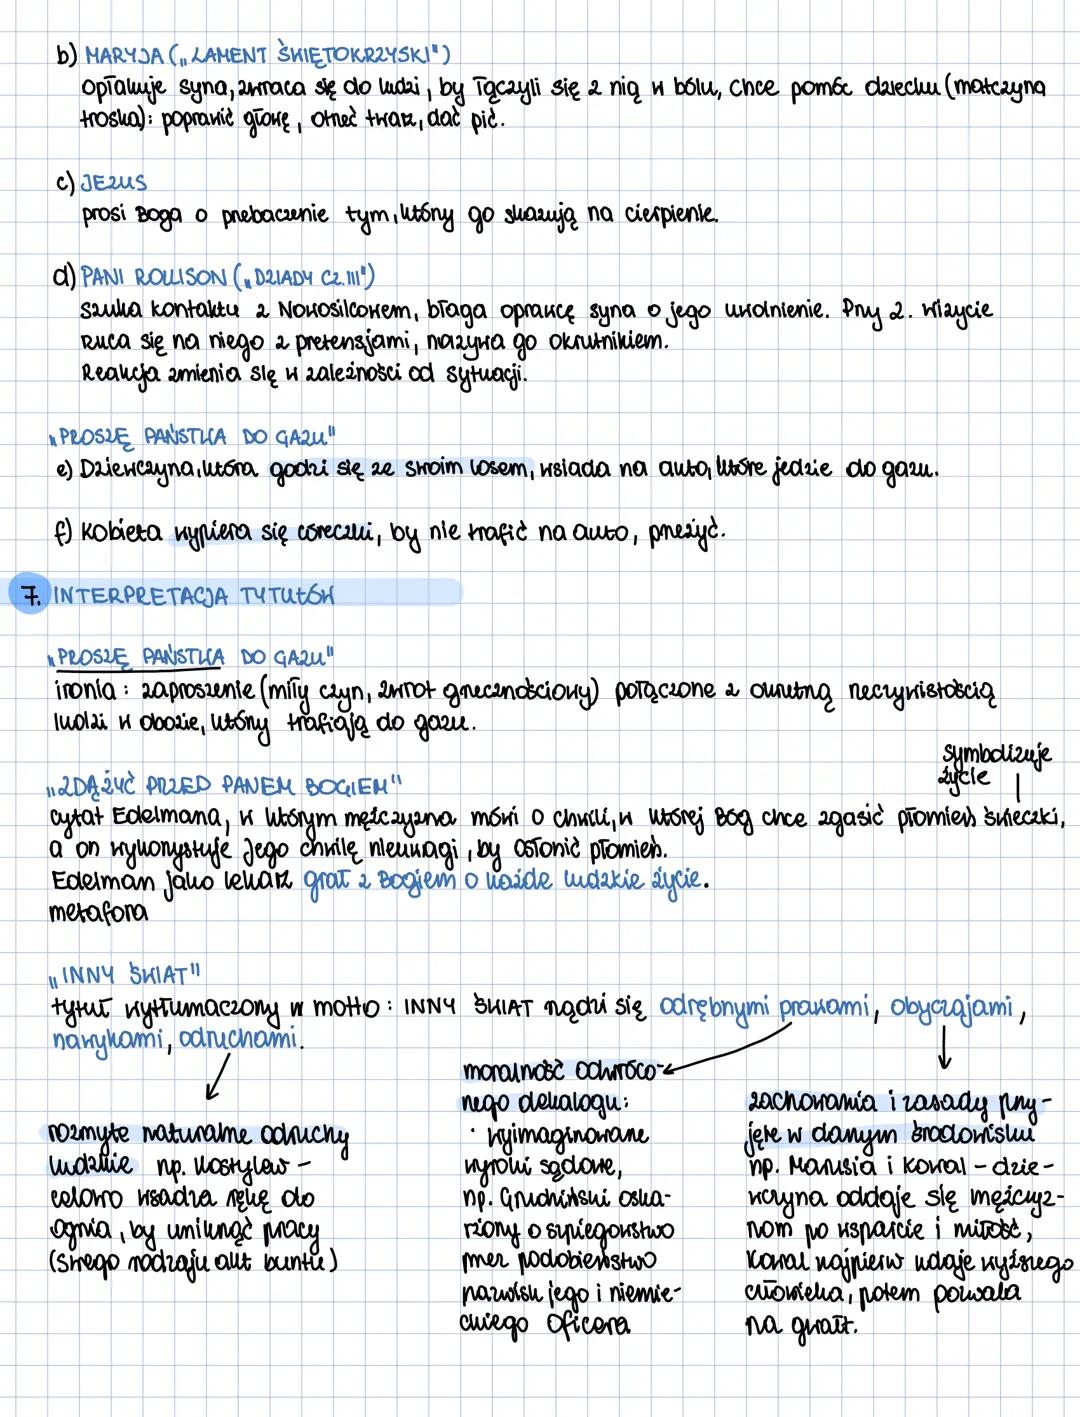 b) MARYJA („LAMENT ŚWIĘTOKRZYSKI")
opłakuje syna, zwraca się do ludzi, by łączyli się z nią w bólu, chce pomóc dziecku (matczyna
troska): poprawić głowę, otrzeć twarz, dać pić.
c) JEZUS
prosi Boga o przebaczenie tym, którzy go skazują na cierpienie.
d) PANI ROLLISON („DZIADY CZ.III")
szuka kontaktu z Nowosilcowem, błaga oprawcę syna o jego uwolnienie. Przy 2. wizycie
rzuca się na niego z pretensjami, nazywa go okrutnikiem.
Reakcja zmienia się w zależności od sytuacji.
„PROSZĘ PAŃSTWA DO GAZU"
e) Dziewczyna, która godzi się ze swoim losem, wsiada na auto, które jedzie do gazu.
f) Kobieta wypiera się córeczki, by nie trafić na auto, przeżyć.
7. INTERPRETACJA TYTUŁÓW
„PROSZĘ PAŃSTWA DO GAZU"
ironia: zaproszenie (miły czyn, zwrot grzecznościowy) połączone z okrutną rzeczywistością
ludzi w obozie, którzy trafiają do gazu.
symbolizuje
życie
„ZDĄŻYĆ PRZED PANEM BOGIEM"
cytat Edelmana, w którym mężczyzna mówi o chwili, w której Bóg chce zgasić płomień świeczki,
a on wykorzystuje Jego chwilę nieuwagi, by osłonić płomień.
Edelman jako lekarz grał z Bogiem o każde ludzkie życie.
metafora
„INNY ŚWIAT"
tytuł wytłumaczony w motto: INNY ŚWIAT rządzi się odrębnymi prawami, obyczajami,
nawykami, odruchami.
rozmyte naturalne odruchy
ludzkie np. Kostylew -
celowo wsadza rękę do
ognia, by uniknąć pracy
(swego rodzaju akt buntu)
moralność odwróco-
nego dekalogu:
· wyimaginowane
wyroki sądowe,
np. Grudziński oska-
rżony o szpiegowstwo
przez podobieństwo
nazwisk jego i niemie-
ckiego oficera
zachowania i zasady przy-
jęte w danym środowisku
np. Marusia i Kowal - dzie-
wczyna oddaje się mężczyz-
nom po wsparcie i miłość,
Kowal najpierw udaje wyższego
człowieka, potem pozwala
na gwałt.